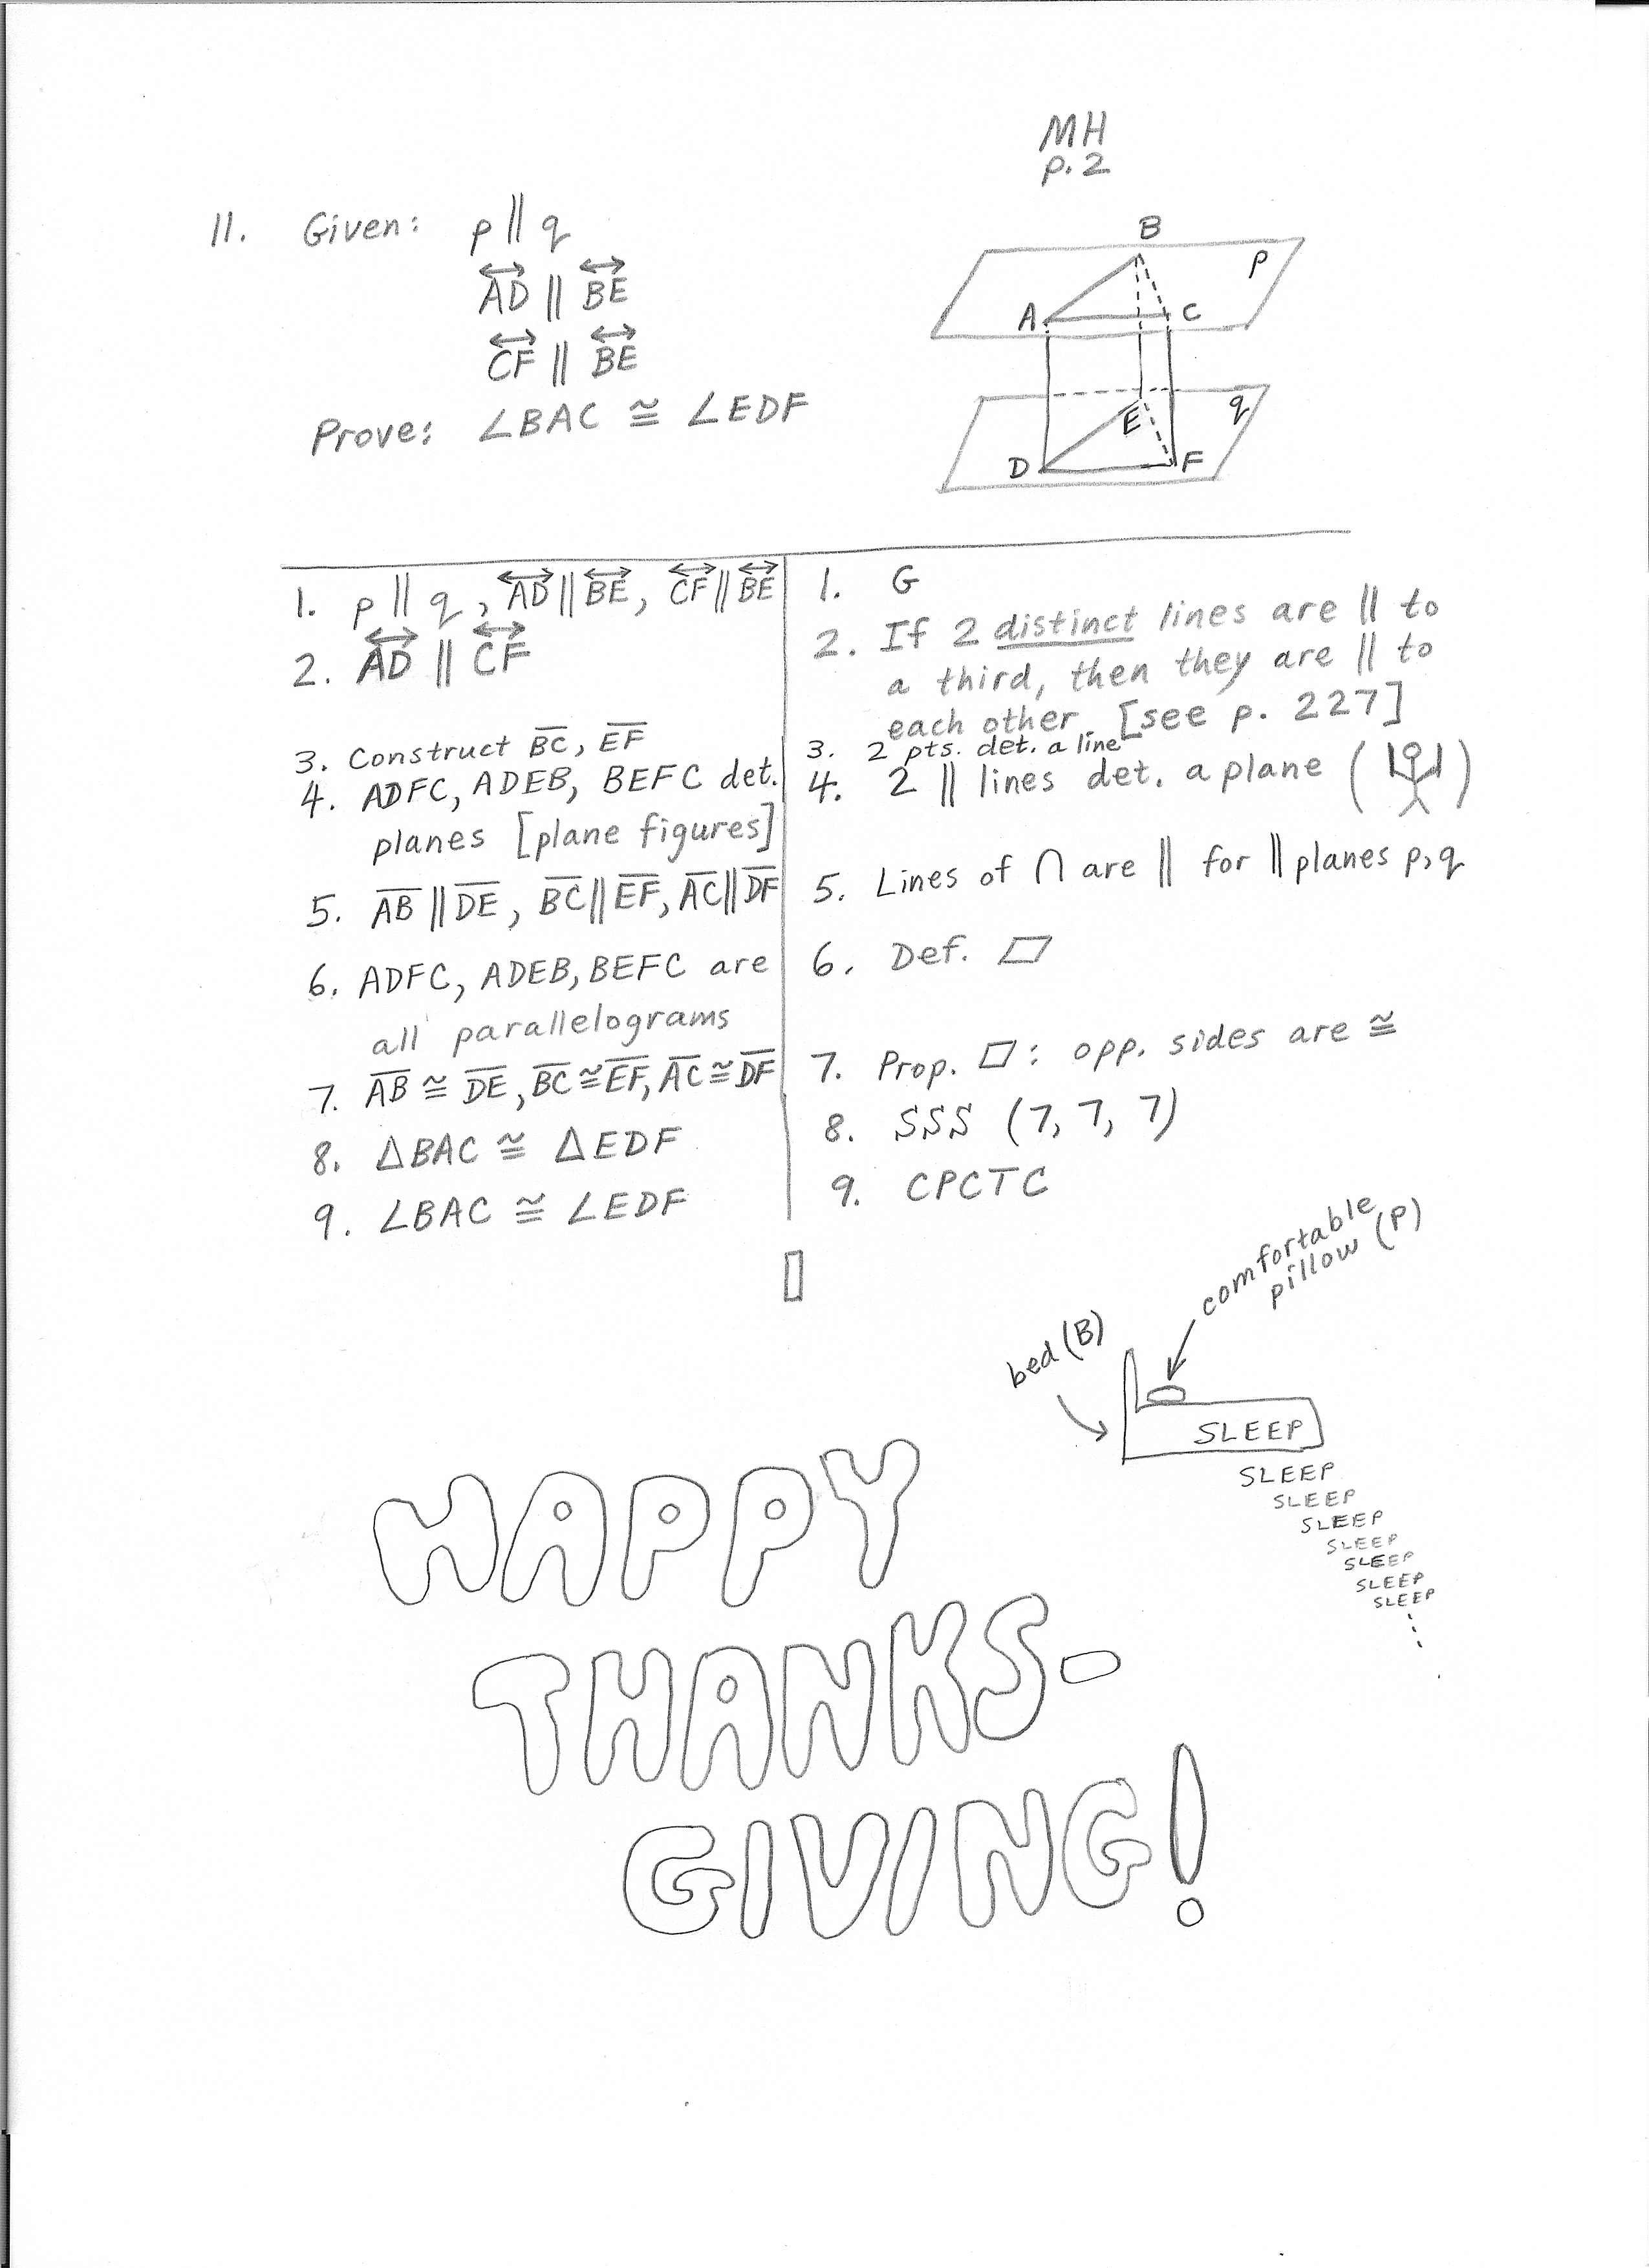 MH
p. 2
11. Given: p || q
AD || BE
CF || BE
Prove: ∠BAC ≅ ∠EDF
B
p
A
C
q
E
D
F
1. p || q, AD || BE, CF || BE
1. G
2. AD || CF
2. If 2 distinct lines are || to
a third, then they are || to
each other. [see p. 227]
3. Construct BC, EF
3. 2 pts. det. a line
4. ADFC, ADEB, BEFC det.
planes [plane figures]
4. 2 || lines det. a plane ( )
5. AB || DE, BC || EF, AC || DF
5. Lines of ∩ are || for || planes p, q
6. ADFC, ADEB, BEFC are
all parallelograms
6. Def. ▱
7. AB ≅ DE, BC ≅ EF, AC ≅ DF
7. Prop. ▱: opp. sides are ≅
8. △BAC ≅ △EDF
8. SSS (7, 7, 7)
9. ∠BAC ≅ ∠EDF
9. CPCTC
comfortable
pillow (P)
bed (B)
SLEEP
SLEEP
SLEEP
SLEEP
SLEEP
SLEEP
SLEEP
SLEEP
HAPPY
THANKS-
GIVING!